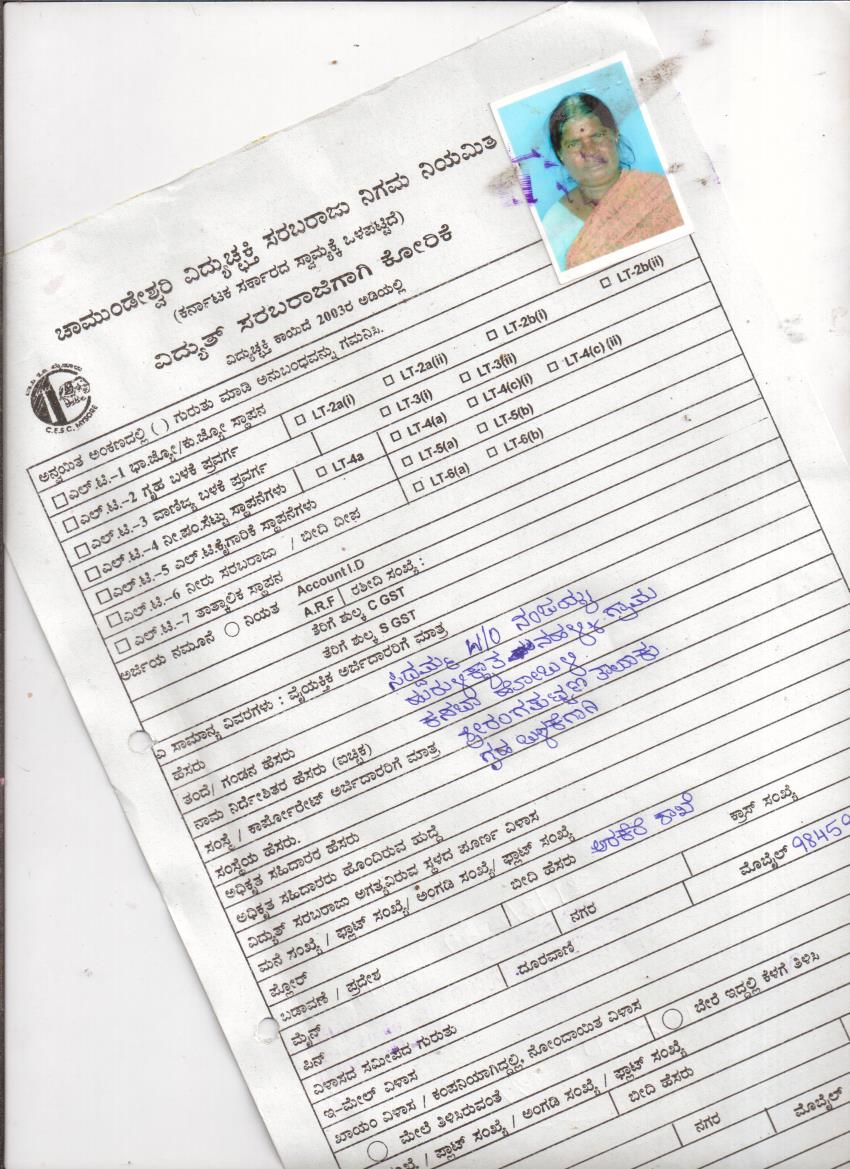 ಚಾಮುಂಡೇಶ್ವರಿ ವಿದ್ಯುಚ್ಛಕ್ತಿ ಸರಬರಾಜು ನಿಗಮ ನಿಯಮಿತ
(ಕರ್ನಾಟಕ ಸರ್ಕಾರದ ಸ್ವಾಮ್ಯಕ್ಕೆ ಒಳಪಟ್ಟಿದೆ)
ವಿದ್ಯುತ್ ಸರಬರಾಜಿಗಾಗಿ ಕೋರಿಕೆ
ವಿದ್ಯುಚ್ಛಕ್ತಿ ಕಾಯಿದೆ 2003ರ ಅಡಿಯಲ್ಲಿ
C.E.S.C. MYSORE
ಅನ್ವಯಿತ ಅಂಕಣದಲ್ಲಿ ( ) ಗುರುತು ಮಾಡಿ ಅನುಬಂಧವನ್ನು ಗಮನಿಸಿ.
ಎಲ್.ಟಿ.-1 ಭಾ.ಜ್ಯೋ/ಕು.ಜ್ಯೋ ಸ್ಥಾಪನ
ಎಲ್.ಟಿ.-2 ಗೃಹ ಬಳಕೆ ಪ್ರವರ್ಗ LT-2a(i) LT-2a(ii) LT-2b(i) LT-2b(ii)
ಎಲ್.ಟಿ.-3 ವಾಣಿಜ್ಯ ಬಳಕೆ ಪ್ರವರ್ಗ LT-3(i) LT-3(ii)
ಎಲ್.ಟಿ.-4 ನೀ.ಪಂ.ಸೆಟ್ಟು ಸ್ಥಾಪನೆಗಳು LT-4a LT-4(a) LT-4(c)(i) LT-4(c) (ii)
ಎಲ್.ಟಿ.-5 ಎಲ್.ಟಿ.ಕೈಗಾರಿಕೆ ಸ್ಥಾಪನೆಗಳು LT-5(a) LT-5(b)
ಎಲ್.ಟಿ.-6 ನೀರು ಸರಬರಾಜು / ಬೀದಿ ದೀಪ LT-6(a) LT-6(b)
ಎಲ್.ಟಿ.-7 ತಾತ್ಕಾಲಿಕ ಸ್ಥಾಪನ
ಅರ್ಜಿಯ ನಮೂನೆ ನಿಯತ Account I.D
A.R.F ರಶೀದಿ ಸಂಖ್ಯೆ :
ತೆರಿಗೆ ಶುಲ್ಕ C GST
ತೆರಿಗೆ ಶುಲ್ಕ S GST
ಎ ಸಾಮಾನ್ಯ ವಿವರಗಳು : ವೈಯಕ್ತಿಕ ಅರ್ಜಿದಾರರಿಗೆ ಮಾತ್ರ
ಹೆಸರು ಸಿದ್ದಮ್ಮ W/O ನಂಜಯ್ಯ
ತಂದೆ/ ಗಂಡನ ಹೆಸರು ಗ್ರಾಮ
ನಾಮ ನಿರ್ದೇಶಿತರ ಹೆಸರು (ಐಚ್ಛಿಕ) ಕಸಬಾ ಹೋಬಳಿ
ಸಂಸ್ಥೆ / ಕಾರ್ಪೋರೇಟ್ ಅರ್ಜಿದಾರರಿಗೆ ಮಾತ್ರ ಶ್ರೀರಂಗಪಟ್ಟಣ ತಾಲೂಕು
ಸಂಸ್ಥೆಯ ಹೆಸರು. ಗೃಹ ಬಳಕೆಗಾಗಿ
ಅಧಿಕೃತ ಸಹಿದಾರರ ಹೆಸರು
ಅಧಿಕೃತ ಸಹಿದಾರರು ಹೊಂದಿರುವ ಹುದ್ದೆ
ವಿದ್ಯುತ್ ಸರಬರಾಜು ಅಗತ್ಯವಿರುವ ಸ್ಥಳದ ಪೂರ್ಣ ವಿಳಾಸ
ಮನೆ ಸಂಖ್ಯೆ / ಫ್ಲಾಟ್ ಸಂಖ್ಯೆ/ ಅಂಗಡಿ ಸಂಖ್ಯೆ/ ಪ್ಲಾಟ್ ಸಂಖ್ಯೆ
ಫ್ಲೋರ್ ಬೀದಿ ಹೆಸರು ಅರಕೆರೆ ಶಾಖೆ ಕ್ರಾಸ್ ಸಂಖ್ಯೆ
ಬಡಾವಣೆ / ಪ್ರದೇಶ
ಮೈನ್ ನಗರ
ಪಿನ್ ದೂರವಾಣಿ ಮೊಬೈಲ್ 98459
ವಿಳಾಸದ ಸಮೀಪದ ಗುರುತು
ಇ-ಮೇಲ್ ವಿಳಾಸ
ಖಾಯಂ ವಿಳಾಸ / ಕಂಪನಿಯಾಗಿದ್ದಲ್ಲಿ, ನೋಂದಾಯಿತ ವಿಳಾಸ
ಮೇಲೆ ತಿಳಿಸಿರುವಂತೆ ಬೇರೆ ಇದ್ದಲ್ಲಿ ಕೆಳಗೆ ತಿಳಿಸಿ
ಸಂಖ್ಯೆ / ಫ್ಲಾಟ್ ಸಂಖ್ಯೆ / ಅಂಗಡಿ ಸಂಖ್ಯೆ / ಪ್ಲಾಟ್ ಸಂಖ್ಯೆ
ಬೀದಿ ಹೆಸರು
ನಗರ
ಮೊಬೈಲ್